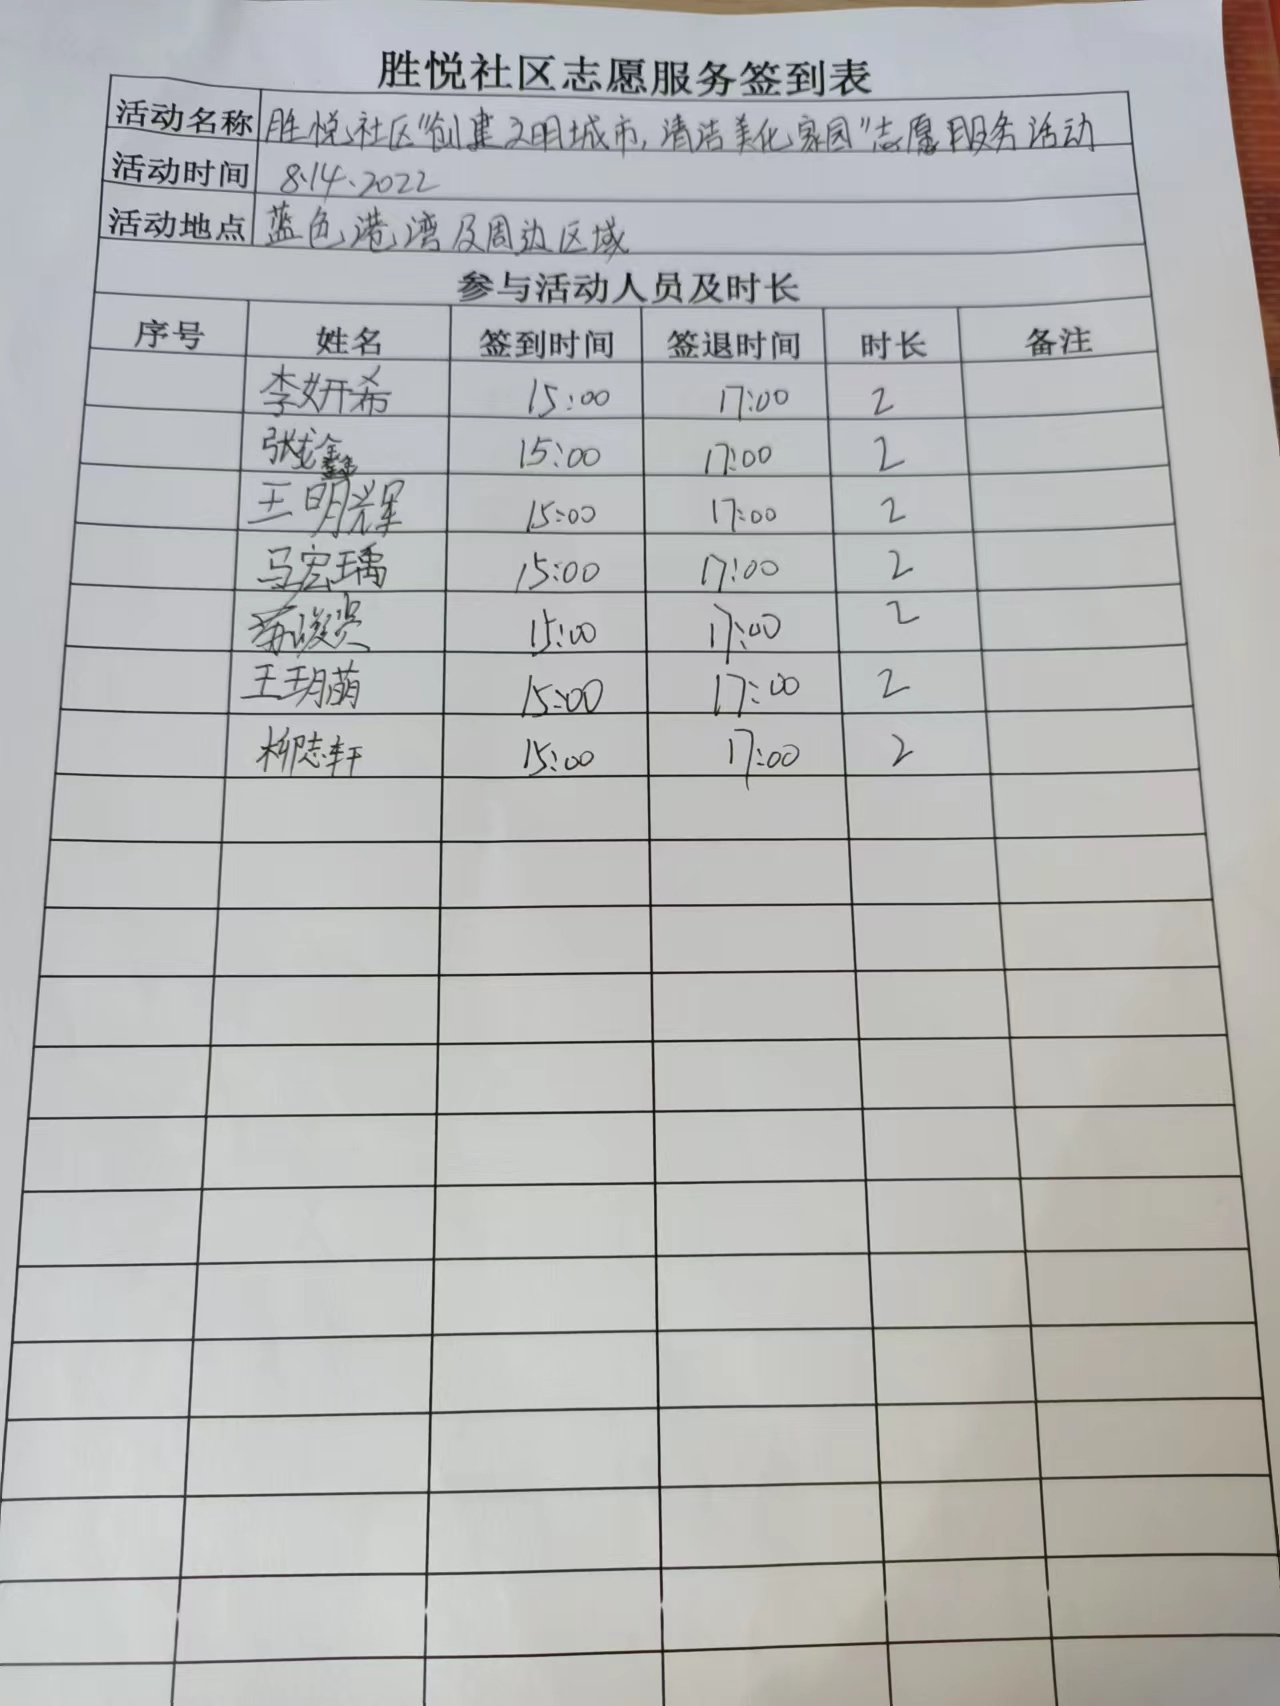 胜悦社区志愿服务签到表
活动名称 胜悦社区"创建文明城市,清洁美化家园"志愿服务活动
活动时间 8.14.2022
活动地点 蓝色港湾及周边区域
参与活动人员及时长
序号 姓名 签到时间 签退时间 时长 备注
李妍希 15:00 17:00 2
张龙鑫 15:00 17:00 2
王明辉 15:00 17:00 2
马宏瑀 15:00 17:00 2
15:00 17:00 2
王玥萌 15:00 17:00 2
柳志轩 15:00 17:00 2